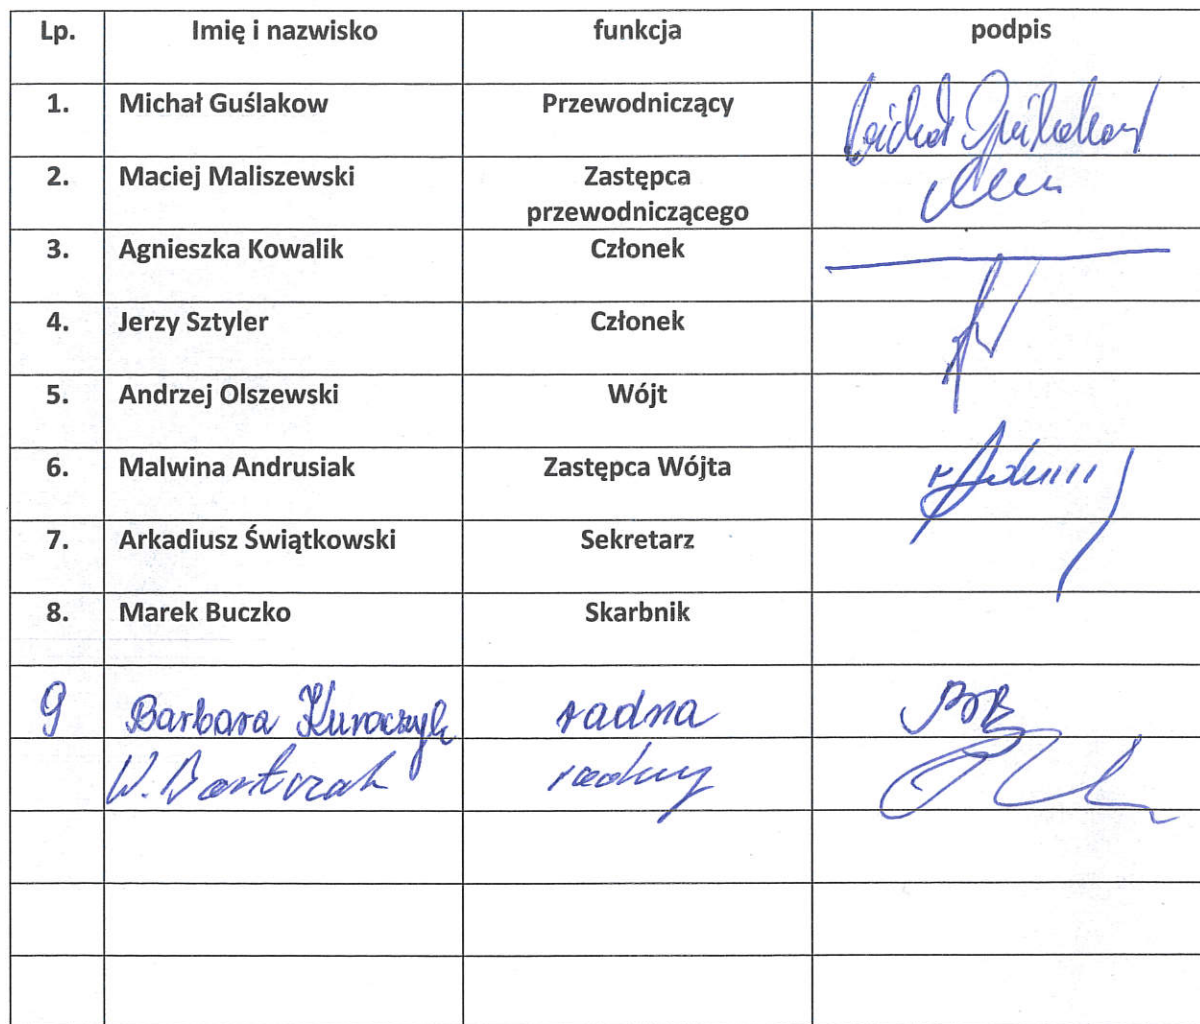 Lp. Imię i nazwisko funkcja podpis
1. Michał Guślakow Przewodniczący
2. Maciej Maliszewski Zastępca
przewodniczącego
3. Agnieszka Kowalik Członek
4. Jerzy Sztyler Członek
5. Andrzej Olszewski Wójt
6. Malwina Andrusiak Zastępca Wójta
7. Arkadiusz Świątkowski Sekretarz
8. Marek Buczko Skarbnik
9 Barbara Kuraczyk radna
W. Bartczak radny